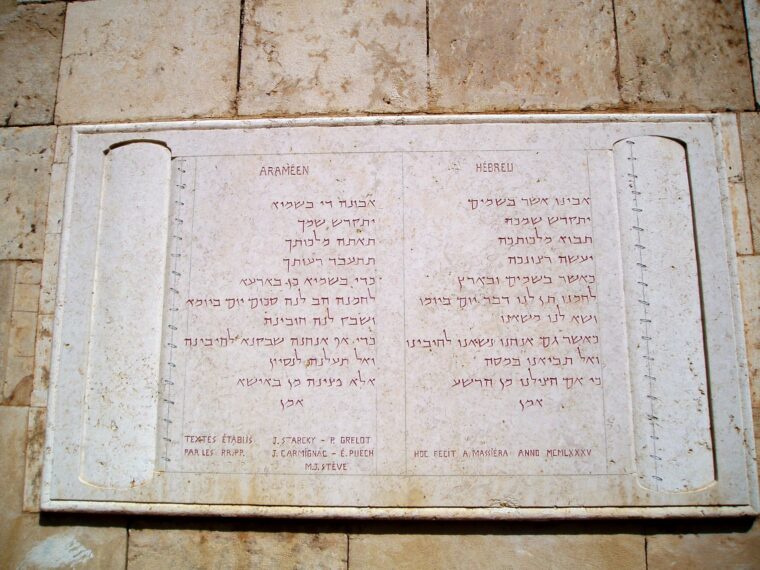 ARAMÉEN
אבונה די בשמיא
יתקדש שמך
תאתה מלכותך
תתעבד רעותך
כדי בשמיא כן בארעא
לחמנה הב לנה סכום יום ביומא
ושבק לנה חובינה
כדי אף אנחנה שבקנא לחיבינה
ואל תעלנה לנסיון
אלא פצינה מן באישא
אמן
TEXTES ÉTABLIS J. STARCKY - P. GRELOT
PAR LES RR.PP. J. CARMIGNAC - É. PUECH
M.J. STÈVE
HÉBREU
אבינו אשר בשמים
יתקדש שמכה
תבוא מלכותכה
יעשה רצונכה
כאשר בשמים ובארץ
לחמנו תן לנו דבר יום ביומו
ושא לנו משאנו
כאשר גם אנחנו נשאנו לחיבינו
ואל תביאנו במסה
כי אם הצילנו מן הרשע
אמן
HOC FECIT A. MASSIERA ANNO MCMLXXXV